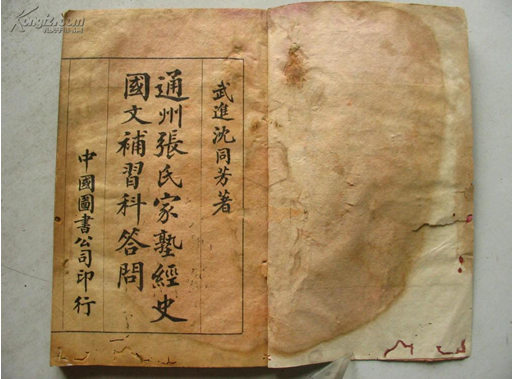 武進沈同芳著
通州張氏家塾經史
國文補習科答問
中國圖書公司印行
Kongfz.com